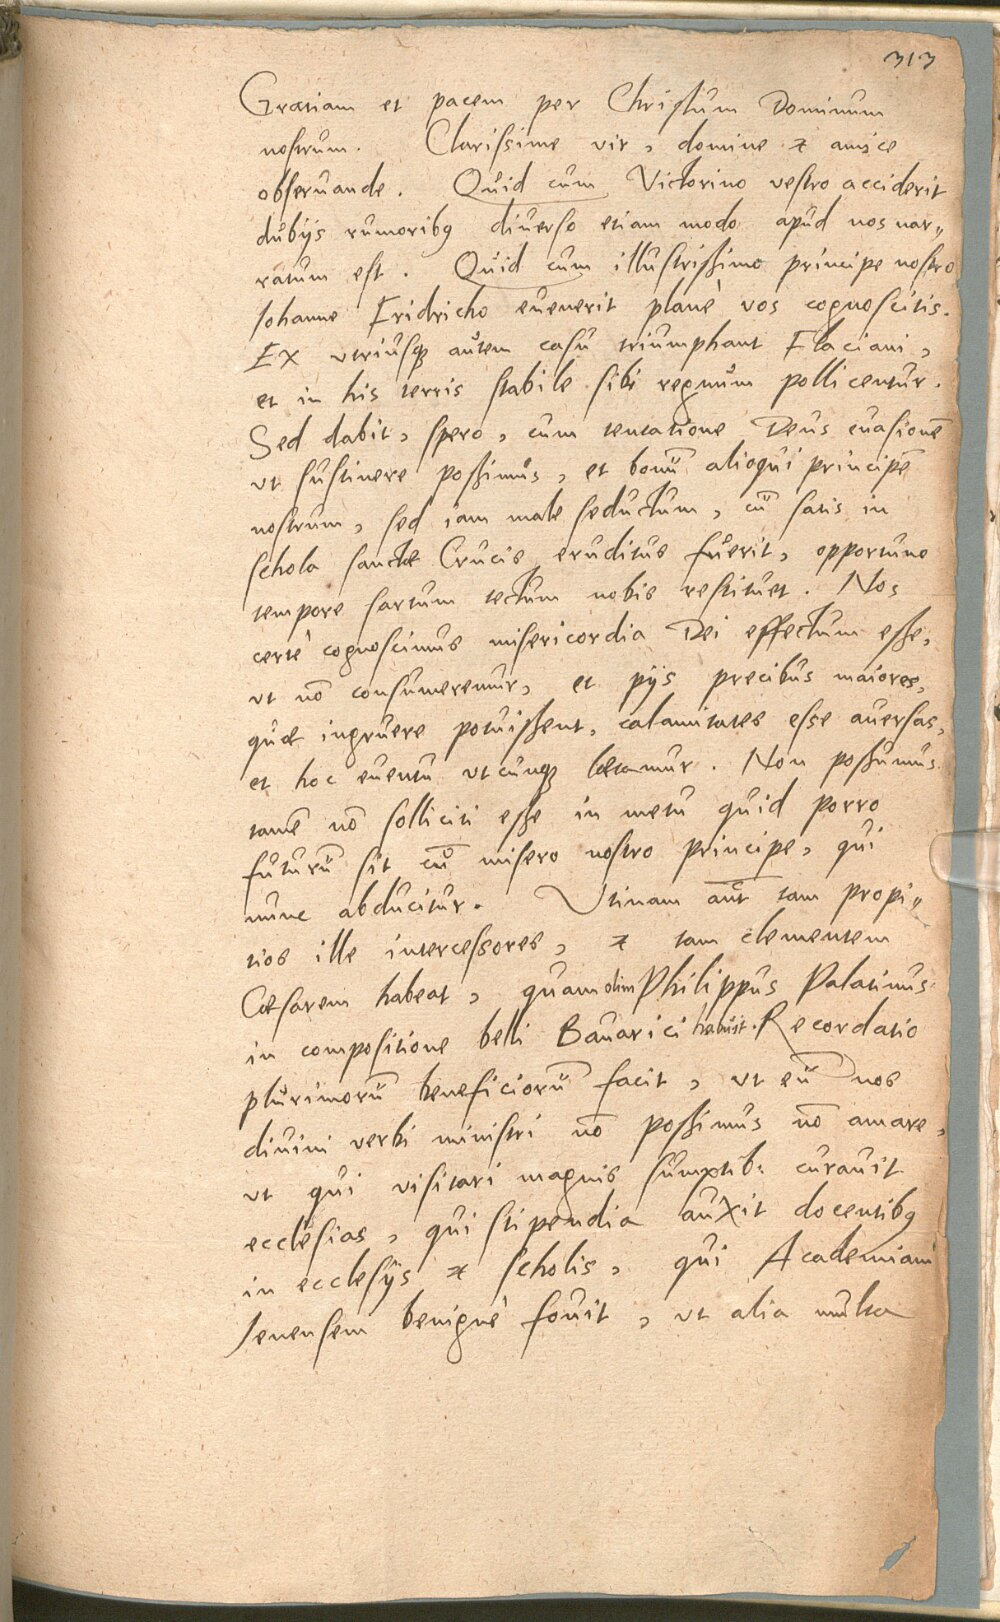 313
Gratiam et pacem per Christum Dominum
nostrum. Clarissime vir, domine & amice
obseruande. Quid cum Victorino vestro acciderit
dubijs rumoribꝫ diuerso etiam modo apud nos nar„
ratum est. Quid cum illustrissimo principe nostro
Iohanne Fridricho euenerit planè vos cognoscitis.
Ex vtriusqꝫ autem casu triumphant Flaciani,
et in his terris stabile sibi regnum pollicentur.
Sed dabit, spero, cum tentatione Deus euasionē
vt sustinere possimus, et bonū alioqui principē
nostrum, sed iam male seductum, cū satis in
schola sanctæ Crucis eruditus fuerit, opportuno
tempore sartum tectum nobis restituet. Nos
certè cognoscimus misericordia Dei effectum esse,
vt nō consumeremur, et pijs precibus maiores,
quæ ingruere potuissent, calamitates esse auersas,
et hoc euentu vtcunqꝫ lætamur. Non possumus
tamē nō solliciti esse in metu quid porro
futurū sit cū misero nostro principe, qui
nunc abducitur. Vtinam aūt tam propi„
tios ille intercessores, & tam clementem
Cæsarem habeat, quam olim Philippus Palatinus
in compositione belli Bauarici habuit. Recordatio
plurimorū beneficiorū facit, vt eū nos
diuini verbi ministri nō possimus nō amare,
vt qui visitari magnis sumptib: curauit
ecclesias, qui stipendia auxit docentibꝫ
in ecclesijs & scholis, qui Academiam
Ienensem benignè fouit, vt alia multa